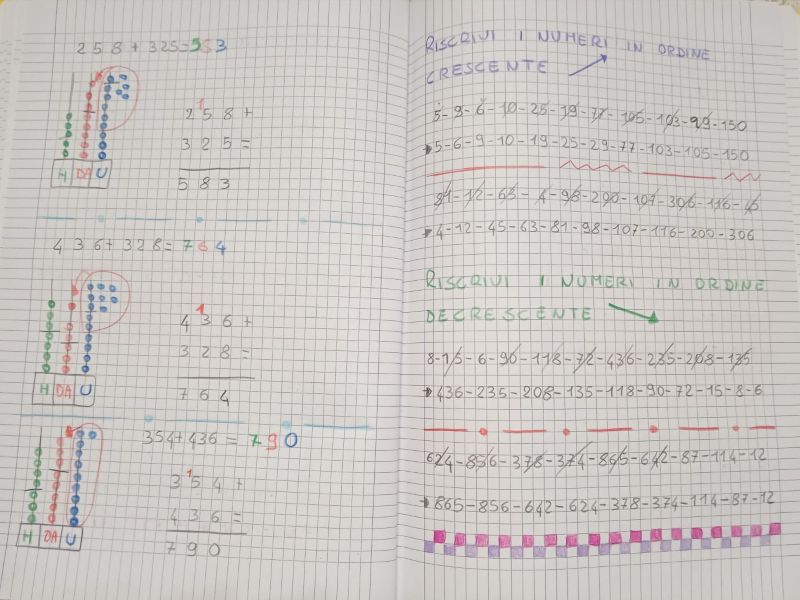 258+325=583
1
258+
325=
583
H DA U
436+328=764
1
436+
328=
764
H DA U
354+436=790
1
354+
436=
790
H DA U
RISCRIVI I NUMERI IN ORDINE
CRESCENTE
5-9-6-10-25-19-77-105-103-29-150
5-6-9-10-19-25-29-77-103-105-150
81-12-63-4-98-200-107-306-116-45
4-12-45-63-81-98-107-116-200-306
RISCRIVI I NUMERI IN ORDINE
DECRESCENTE
8-15-6-90-118-72-436-235-208-135
436-235-208-135-118-90-72-15-8-6
624-856-378-374-865-642-87-114-12
865-856-642-624-378-374-114-87-12